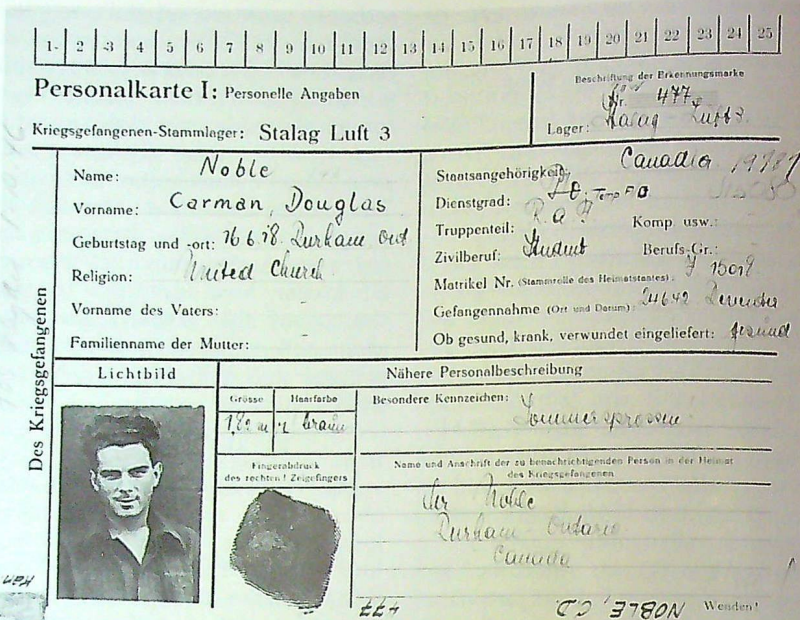 1 2 3 4 5 6 7 8 9 10 11 12 13 14 15 16 17 18 19 20 21 22 23 24 25
Personalkarte I: Personelle Angaben
Beschriftung der Erkennungsmarke
Nr. 477
Kriegsgefangenen-Stammlager: Stalag Luft 3
Lager: Stalag Luft 3
Des Kriegsgefangenen
Name: Noble
Vorname: Carman, Douglas
Geburtstag und -ort: 16 6 18. Durham Ont
Religion: United Church
Vorname des Vaters: -
Familienname der Mutter: -
Staatsangehörigkeit: Canadier
Dienstgrad:
Truppenteil: R.a.F Komp. usw.:
Zivilberuf: Student Berufs-Gr.:
Matrikel Nr. (Stammrolle des Heimatstaates): J 15018
Gefangennahme (Ort und Datum): 24642
Ob gesund, krank, verwundet eingeliefert: gesund
Lichtbild
Nähere Personalbeschreibung
Grösse Haarfarbe
braun
Besondere Kennzeichen: Sommersprossen
Fingerabdruck
des rechten ! Zeigefingers
Name und Anschrift der zu benachrichtigenden Person in der Heimat
des Kriegsgefangenen
Noble
Durham - Ontario
Canada
477 NOBLE, C.D.
Wenden!